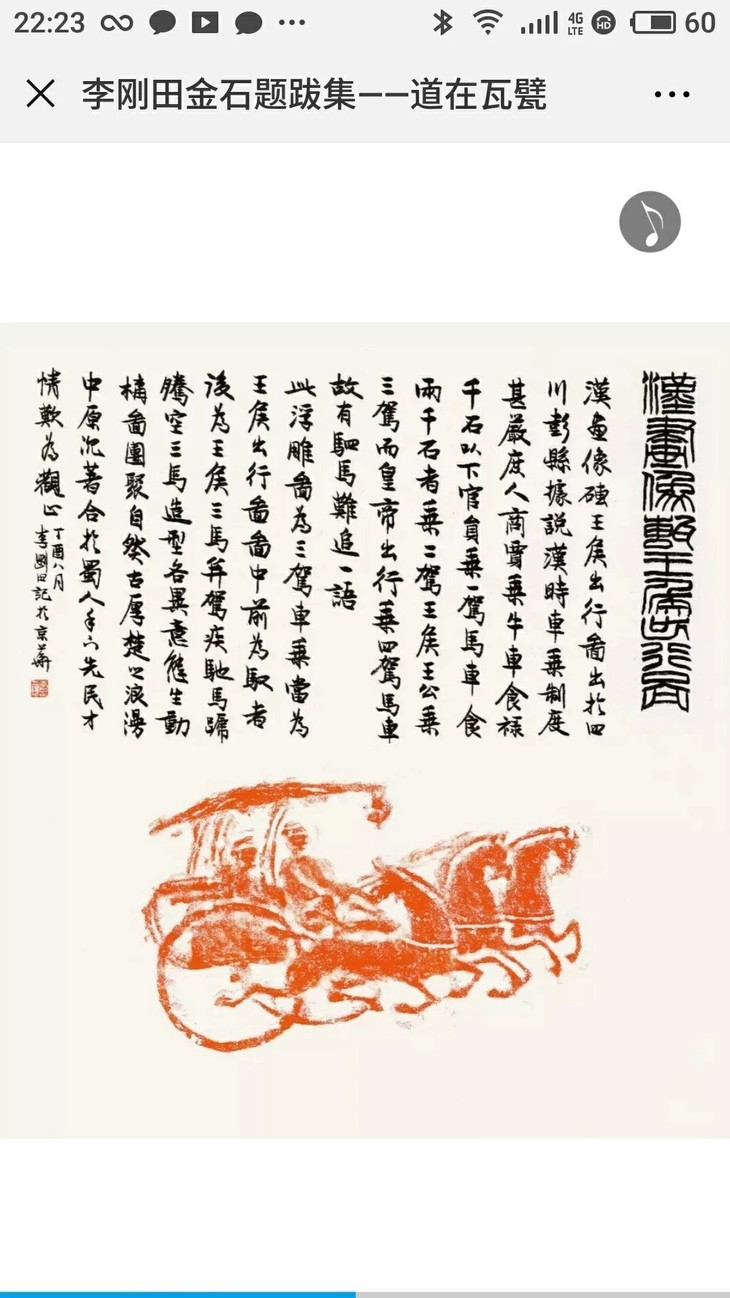 22:23
4G
LTE
HD
60
李刚田金石题跋集——道在瓦甓
漢畫像
王
出行
漢畫像磚王矦出行圖出於四
川彭縣據說漢時車乘制度
甚嚴庶人商賈乘牛車食祿
千石以下官員乘一駕馬車食
兩千石者乘二駕王矦王公乘
三駕而皇帝出行乘四駕馬車
故有駟馬難追一語
此浮雕圖為三駕車乘當為
王矦出行圖圖中前為馭者
後為王矦三馬并駕疾馳馬蹄
騰空三馬造型各異意態生動
構圖團聚自然古厚楚之浪漫
中原沉著合於蜀人手下先民才
情歎為觀止
丁酉八月
李剛田記於京華